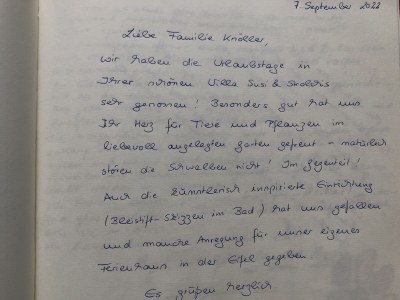 7. September 2022
Liebe Familie Knöller,
wir haben die Urlaubstage in
Ihrer schönen Villa Susi &
sehr genossen! Besonders gut hat uns
Ihr Herz für Tiere und Pflanzen im
liebevoll angelegten Garten gefreut – natürlich
stören die Schwalben nicht! Im Gegenteil!
Auch die künstlerisch inspirierte Einrichtung
(Bleistift-Skizzen im Bad) hat uns gefallen
und manche Anregung für unser eigenes
Ferienhaus in der Eifel gegeben.
Es grüßen herzlich